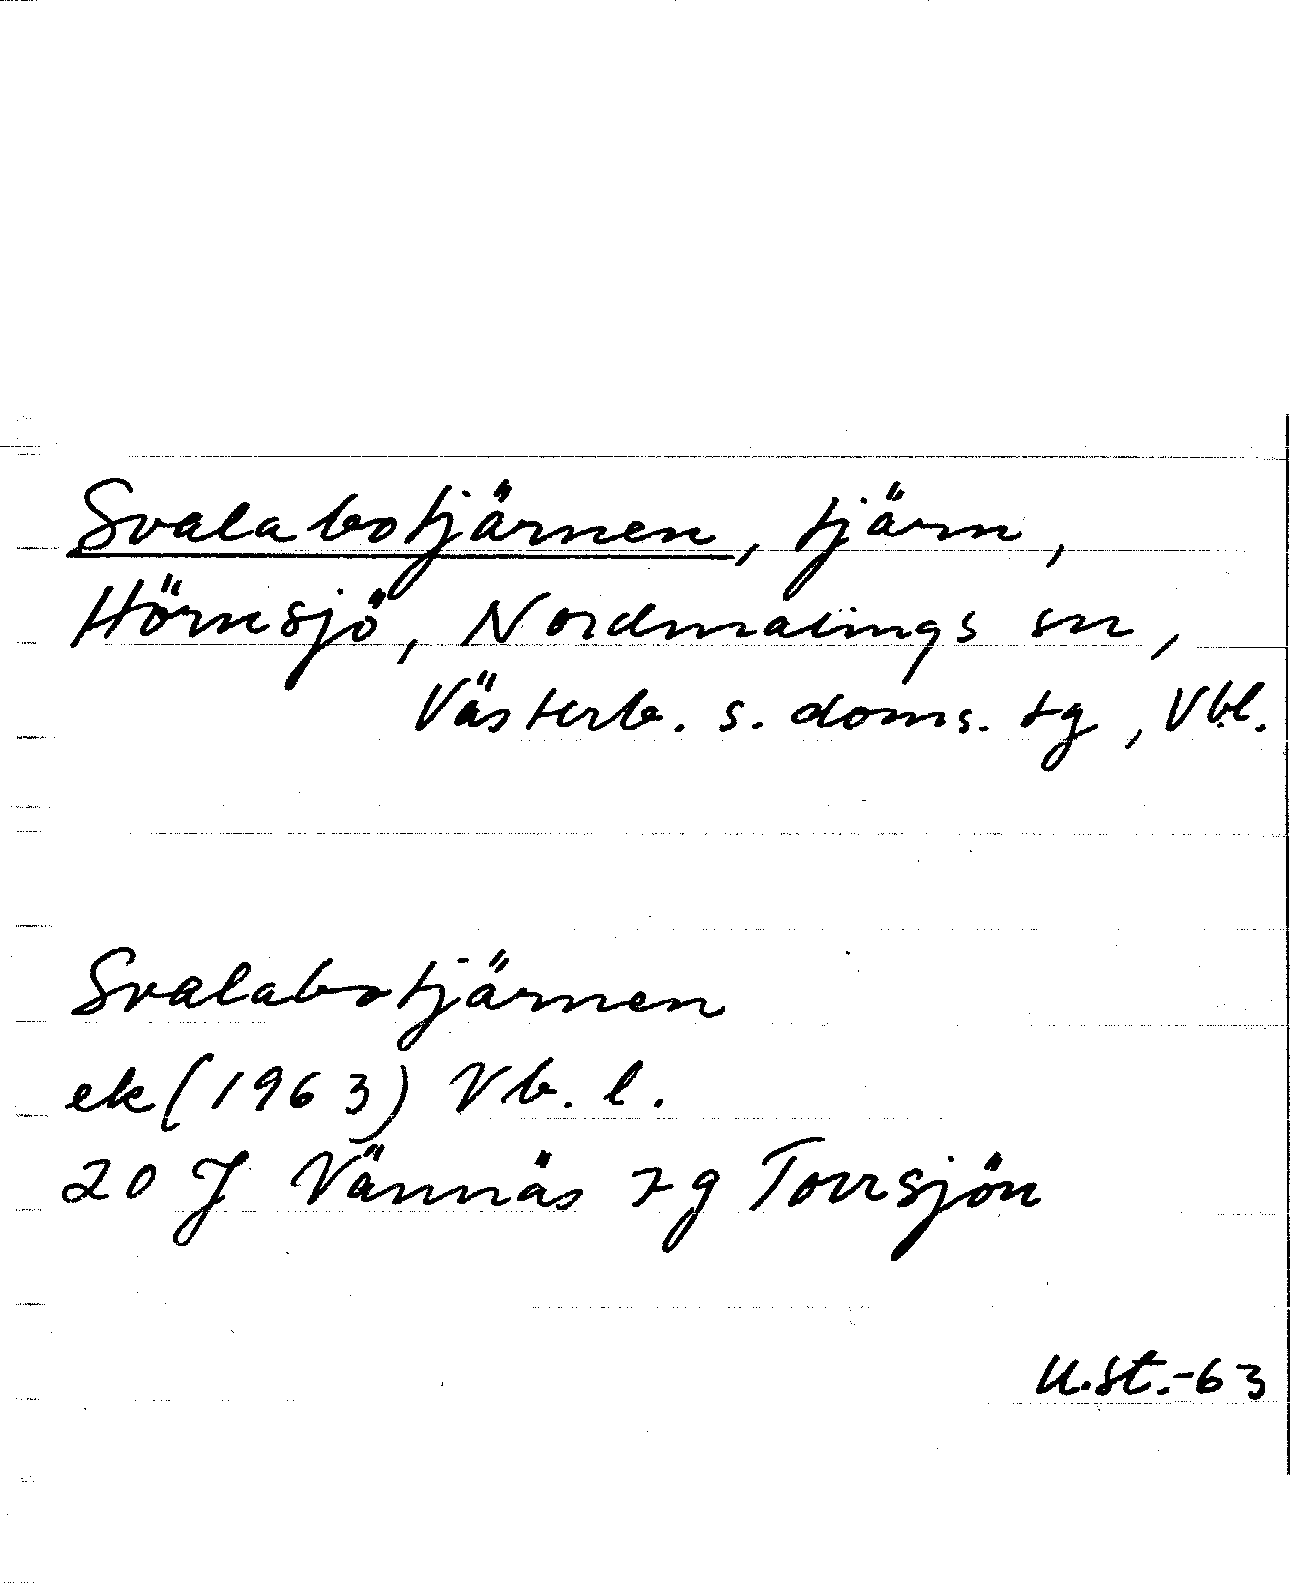 Svalabotjärnen, tjärn,
Hörnsjö, Nordmalings sn,
Västerb. s. doms. tg, Vbl.
Svalabotjärnen
ek (1963) Vb. l.
20 J Vännäs rg Torrsjön
U.St.-63